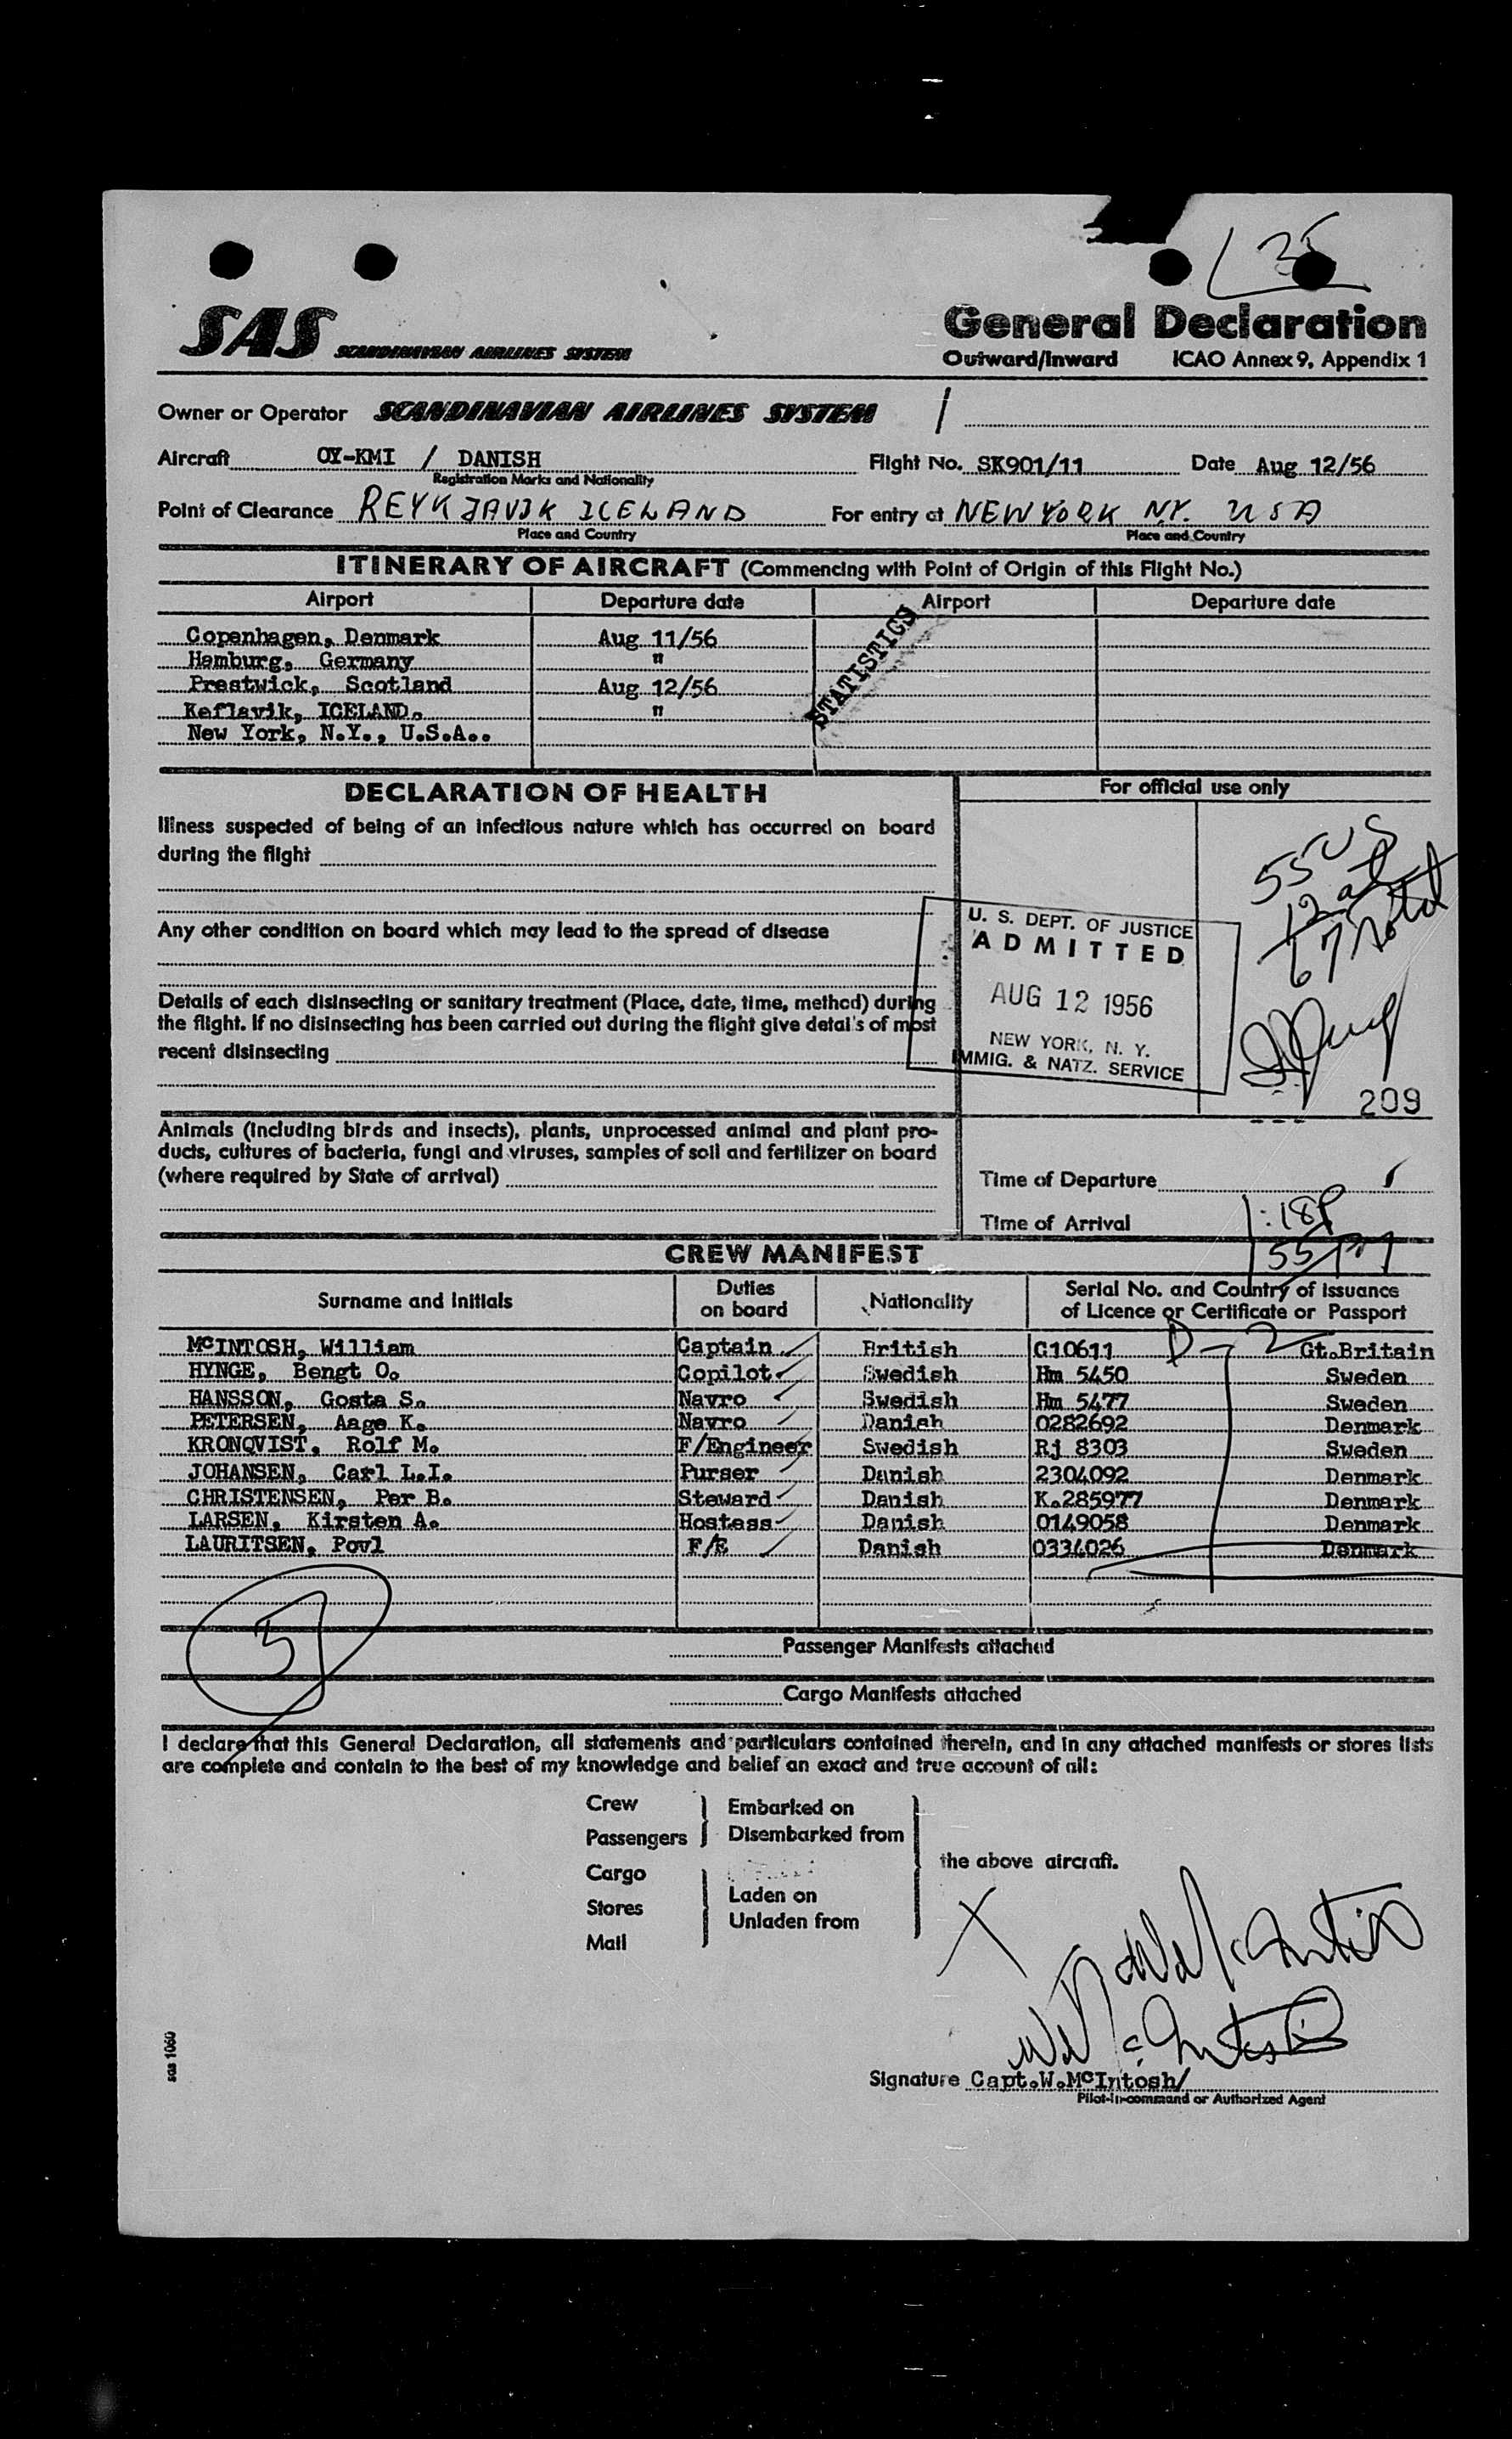 35
SAS SCANDINAVIAN AIRLINES SYSTEM
General Declaration
Outward/Inward ICAO Annex 9, Appendix 1
Owner or Operator SCANDINAVIAN AIRLINES SYSTEM /
Aircraft OY-KMI / DANISH Flight No. SK901/11 Date Aug 12/56
Registration Marks and Nationality
Point of Clearance REYKJAVIK ICELAND For entry at NEW YORK N.Y. USA
Place and Country Place and Country
ITINERARY OF AIRCRAFT (Commencing with Point of Origin of this Flight No.)
Airport Departure date Airport Departure date
Copenhagen, Denmark Aug 11/56
Hamburg, Germany "
Prestwick, Scotland Aug 12/56
Keflavik, ICELAND. "
New York, N.Y., U.S.A..
STATISTICS
DECLARATION OF HEALTH
Illness suspected of being of an infectious nature which has occurred on board
during the flight
Any other condition on board which may lead to the spread of disease
Details of each disinsecting or sanitary treatment (Place, date, time, method) during
the flight. If no disinsecting has been carried out during the flight give detai's of most
recent disinsecting
Animals (including birds and insects), plants, unprocessed animal and plant pro-
ducts, cultures of bacteria, fungi and viruses, samples of soil and fertilizer on board
(where required by State of arrival)
For official use only
55 US
12 al
67 total
U. S. DEPT. OF JUSTICE
ADMITTED
AUG 12 1956
NEW YORK, N. Y.
IMMIG. & NATZ. SERVICE
209
Time of Departure
Time of Arrival 1:18P
155PM
CREW MANIFEST
Surname and Initials Duties on board Nationality Serial No. and Country of Issuance of Licence or Certificate or Passport
D-2
McINTOSH, William Captain British C10611 Gt.Britain
HYNGE, Bengt O. Copilot Swedish Hm 5450 Sweden
HANSSON, Gosta S. Navro Swedish Hm 5477 Sweden
PETERSEN, Aage K. Navro Danish 0282692 Denmark
KRONQVIST, Rolf M. F/Engineer Swedish Rj 8303 Sweden
JOHANSEN, Carl L.I. Purser Danish 2304092 Denmark
CHRISTENSEN, Per B. Steward Danish K.285977 Denmark
LARSEN, Kirsten A. Hostess Danish 0149058 Denmark
LAURITSEN, Povl F/E Danish 0334026 Denmark
Passenger Manifests attached
Cargo Manifests attached
I declare that this General Declaration, all statements and particulars contained therein, and in any attached manifests or stores lists
are complete and contain to the best of my knowledge and belief an exact and true account of all:
Crew
Passengers
Embarked on
Disembarked from
Cargo
Stores
Mail
Laden on
Unladen from
the above aircraft.
X
W McIntosh
Signature Capt.W.McIntosh/
Pilot-in-command or Authorized Agent
sas 1060